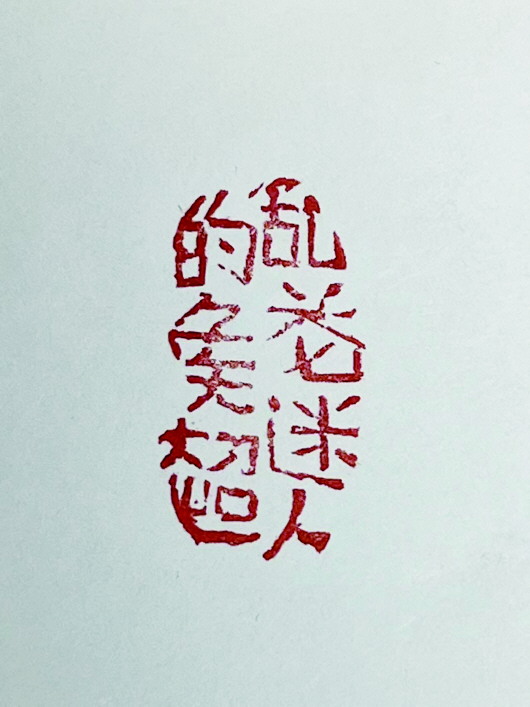 乱花迷人
的 超